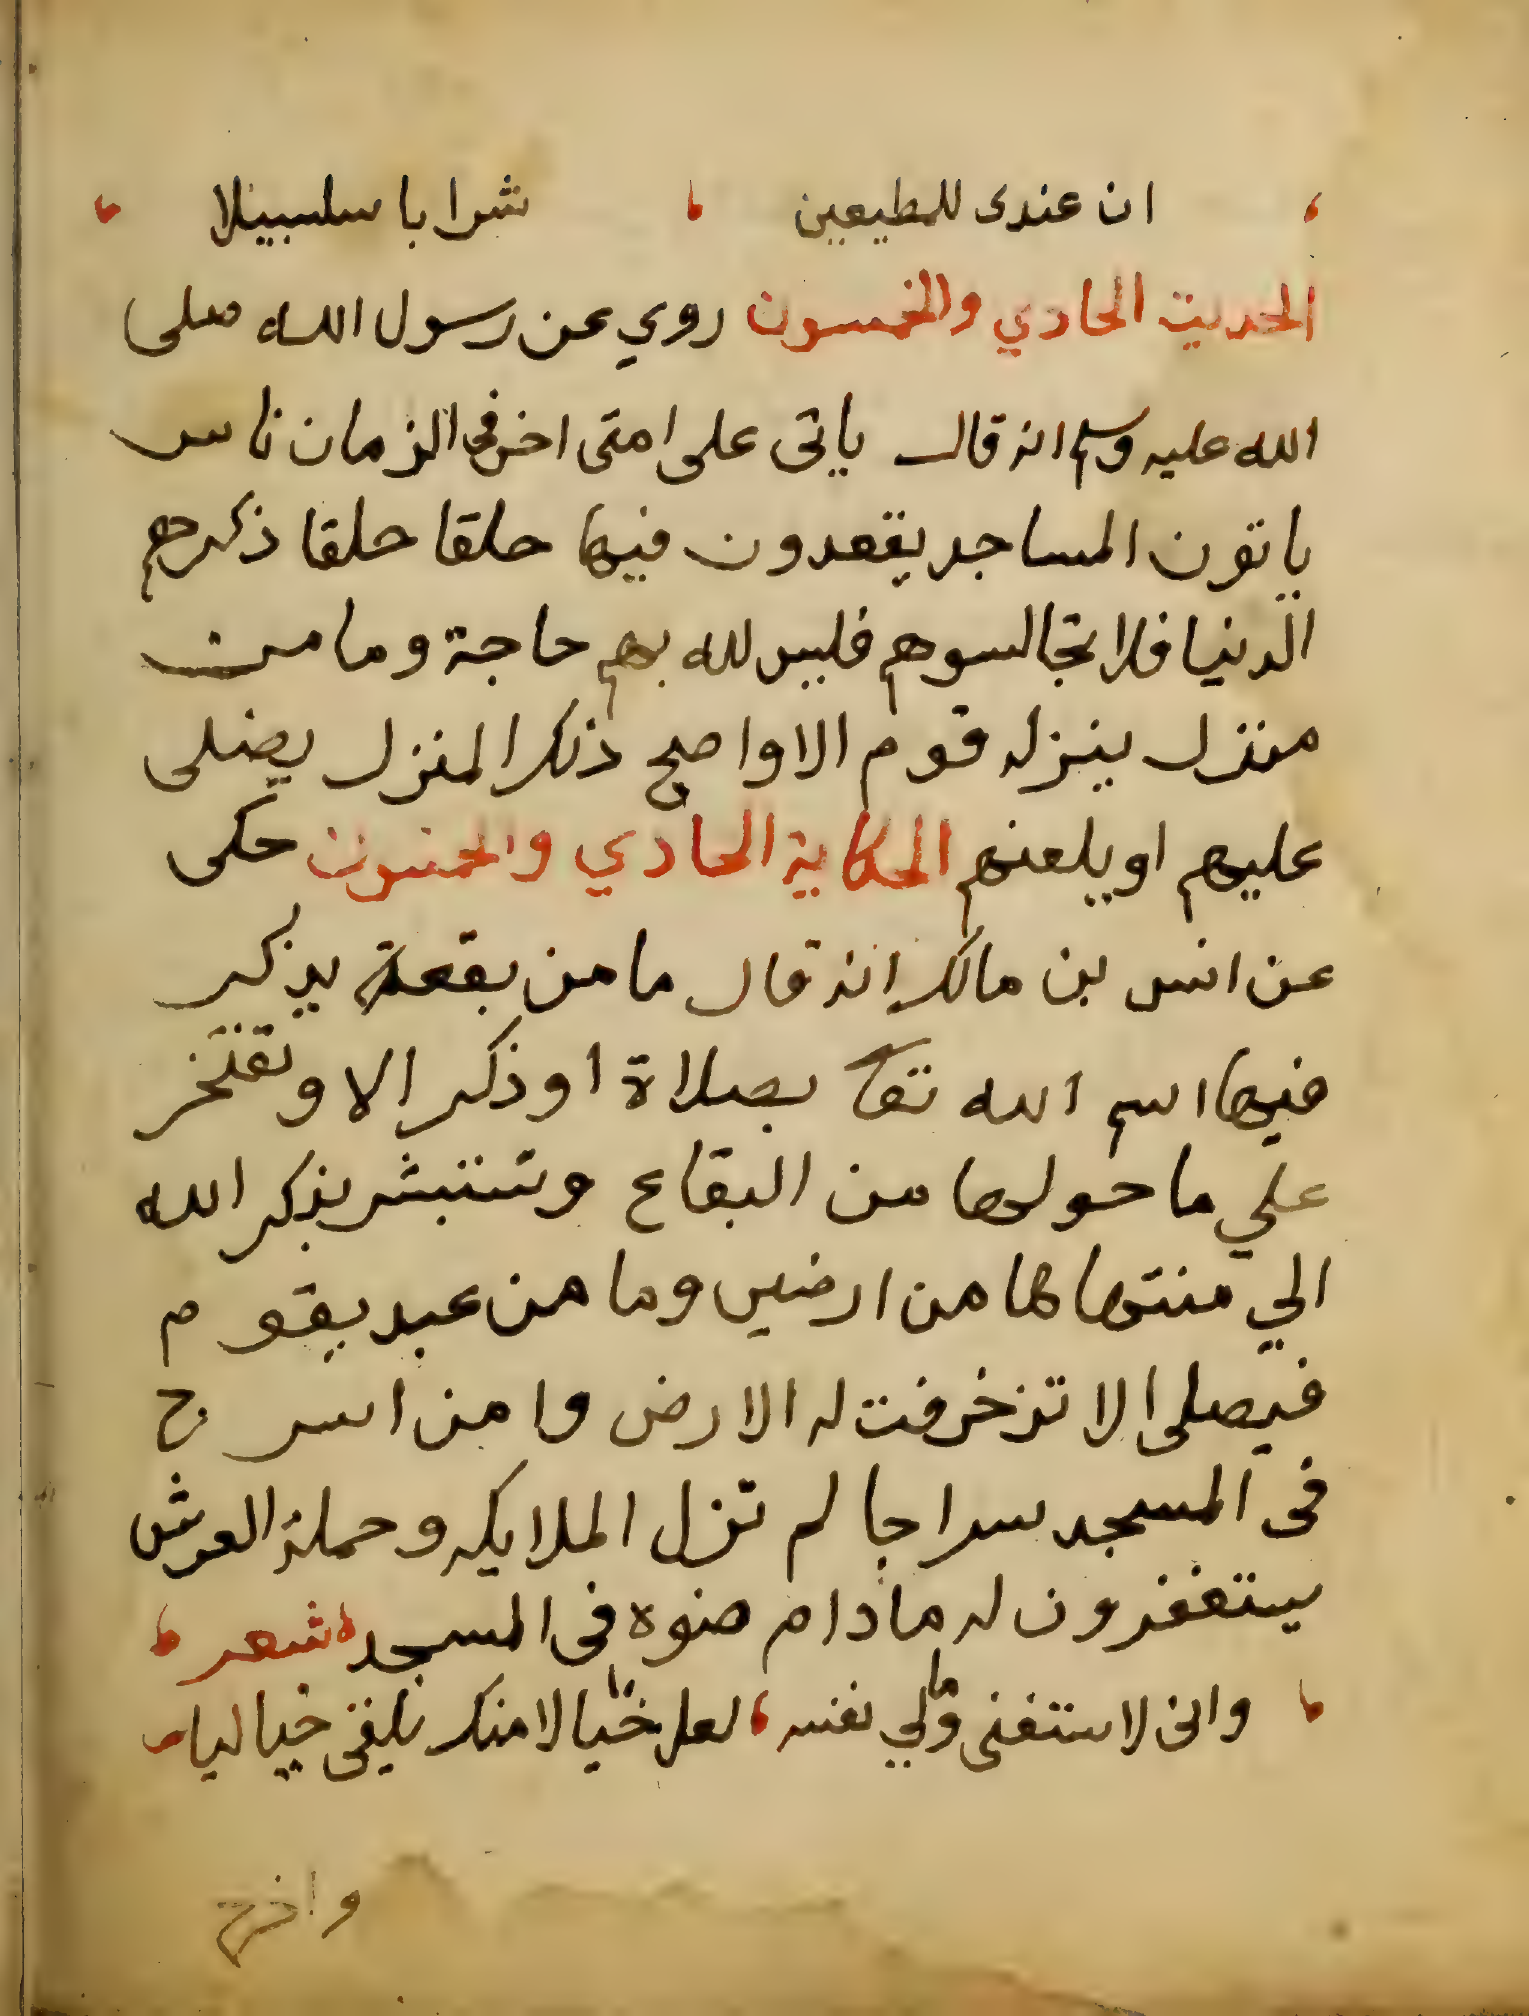 ان عندى للمطيعين ، شرابا سلسبيلا
الحديث الحادي والخمسون روي عن رسول الله صلى
الله عليه وسلم انه قال ياتى على امتى اخر فى الزمان ناس
ياتون المساجد يقعدون فيها حلقا حلقا ذكرهم
الدنيا فلا تجالسوهم فليس لله بهم حاجة وما من
منزل ينزله قوم الا واصبح ذلك المنزل يصلى
عليهم او يلعنهم الحكاية الحادي والخمسون حكى
عن انس بن مالك انه قال ما من بقعة يذكر
فيها اسم الله تعا بصلاة او ذكر الا وتفتخر
علي ما حولها من البقاع وتستبشر بذكر الله
الي منتهاها من ارضين وما من عبد يقوم
فيصلى الا تزخرفت له الارض وا من اسرج
فى المسجد سراجا لم تزل الملايكه وحملة العرش
يستغفرون له مادام ضوه فى المسجد شعر
وانى لاستغنى وما لي نفسه ، لعل خيالا منك يلقى خياليا
واخرج